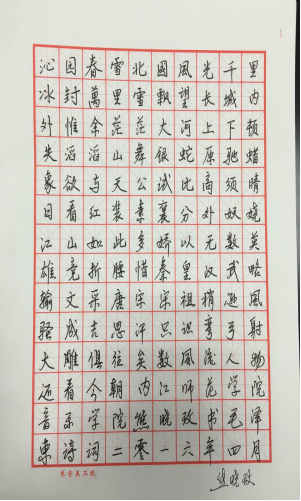 沁园春雪北國風光千里
冰封萬里雪飘望长城内
外惟余茫茫大河上下顿
失滔滔山舞银蛇原驰蜡
象欲与天公试比高须晴
日看红装素裹分外妖娆
江山如此多娇以无数英
雄竟折腰惜秦皇汉武略
输文采唐宗宋祖稍逊風
骚成吉思汗只识弯弓射
大雕俱往矣数風流人物
还看今朝内江师范学院
音乐学院熊晓孜书毛泽
東诗词二零一六年四月
熊晓孜